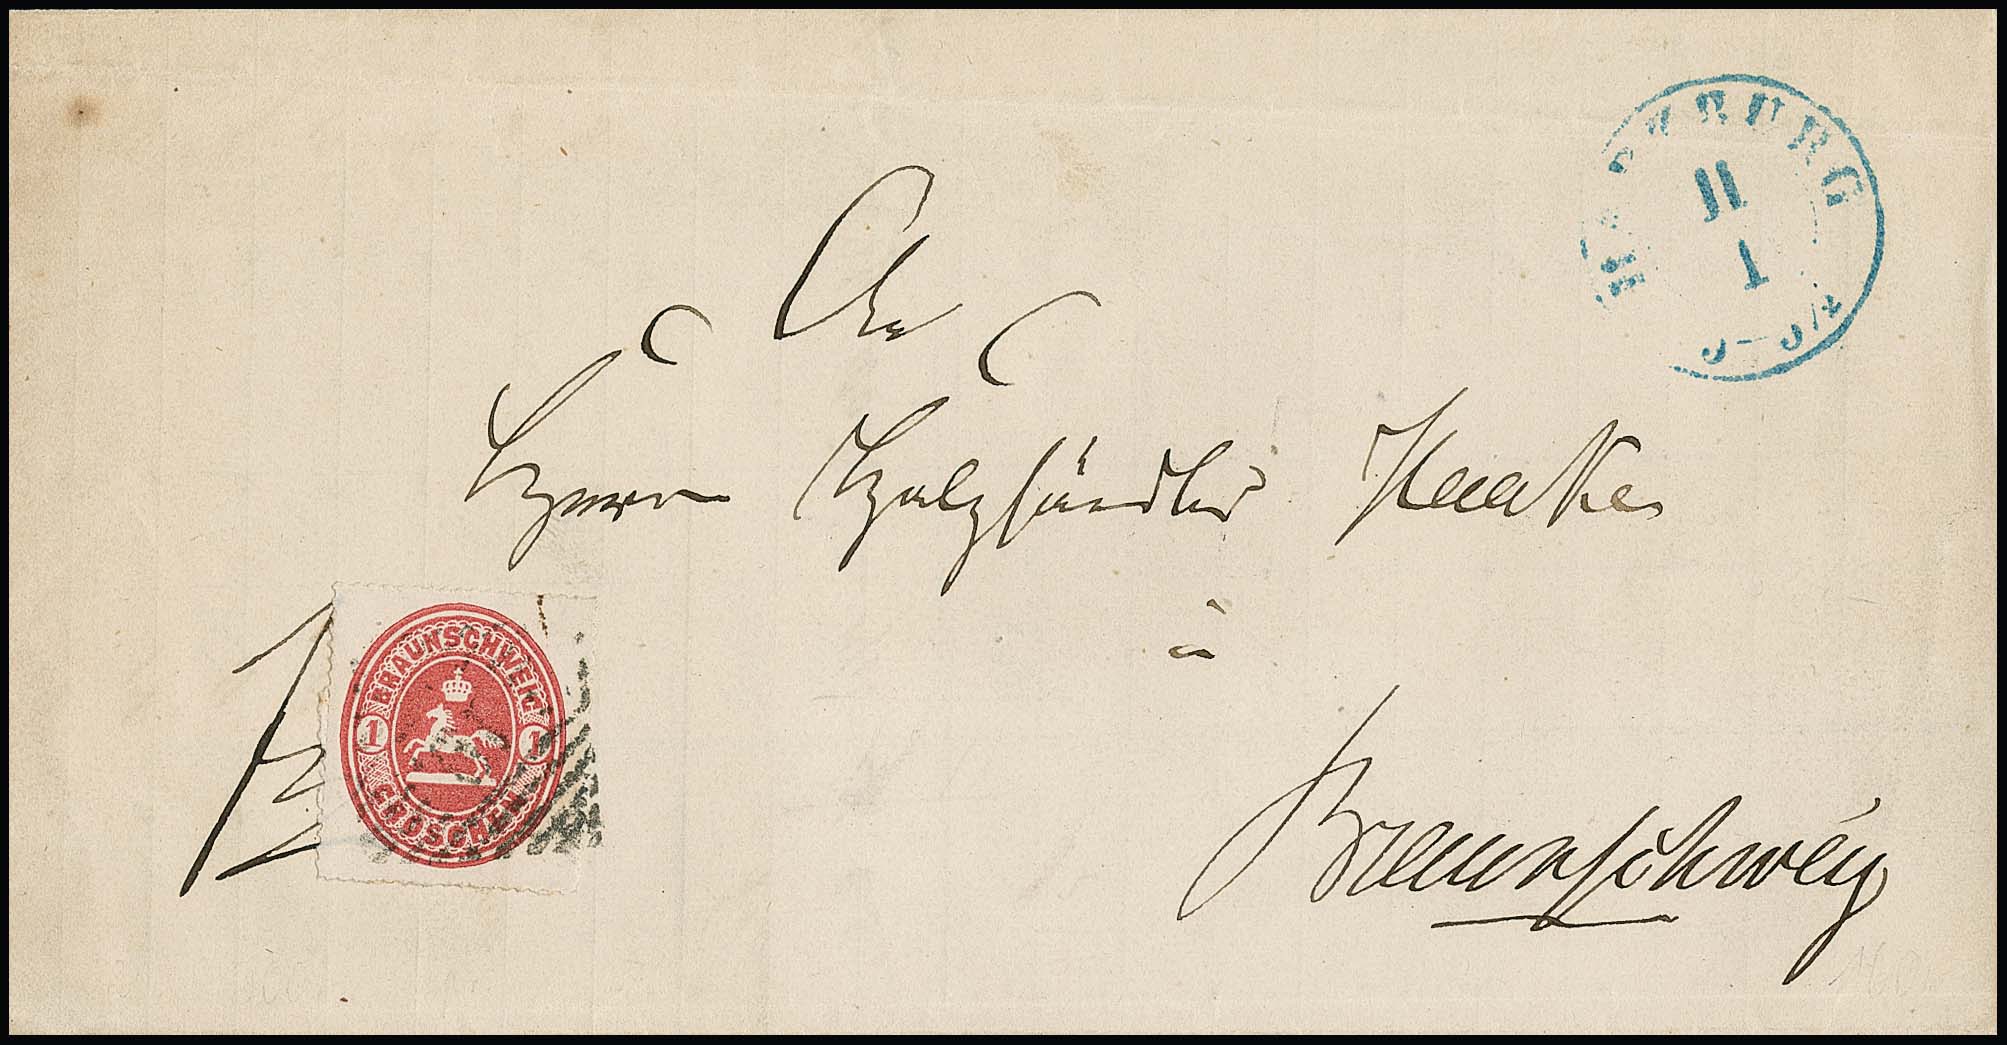 HARZBURG
11
1
5-5½
An
Herrn Holzhändler Haake
in
Braunschweig
BRAUNSCHWEIG
1 1
GROSCHEN